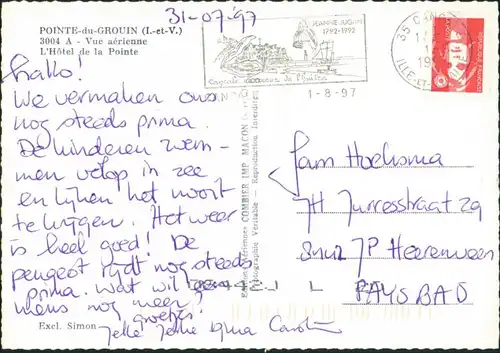 31-07-97
POINTE-du-GROUIN (I.-et-V.)
3004 A - Vue aérienne
L'Hôtel de la Pointe
JEANNE JUGAN
1792-1992
Cancale
de l'huître
35 CANC
ILLE-ET-
1-8-97
hallo!
We vermaken ons
nog steeds prima.
De kinderen zwem-
men volop in zee
en lijken het nooit
te krijgen. Het weer
is heel goed! De
peugeot rijdt nog steeds
prima. Wat wil een
mens nog meer?
groetjes.
Jelle Carolien
Excl. Simon
COMBIER IMP. MACON
Photographie Véritable - Reproduction Interdite
Fam Hoeksma
JH
8442 JP Heerenveen
PAYS BAS